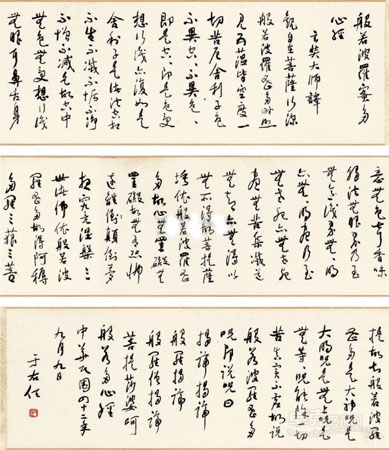 般若波羅蜜多
心經
玄奘大師譯
觀自在菩薩行深
般若波羅蜜多時照
見五蘊皆空度一
切苦厄舍利子色
不異空空不異色色
即是空空即是色受
想行識亦復如是
舍利子是諸法空相
不生不滅不垢不淨
不增不減是故空中
無色無受想行識
無眼耳鼻舌身
意無色聲香味
觸法無眼界乃至
無意識界無無
明亦無無明盡乃至
無老死亦無老死
盡無苦集滅道
無智亦無得以
無所得故菩提薩
埵依般若波羅蜜
多故心無罣礙無
罣礙故無有恐怖
遠離顛倒夢
想究竟涅槃三
世諸佛依般若波
羅蜜多故得阿耨
多羅三藐三菩
提故知般若波羅
蜜多是大神咒是
大明咒是無上咒是
無等等咒能除一切
苦真實不虛故說
般若波羅蜜多
咒即說咒曰
揭諦揭諦
般羅揭諦
般羅僧揭諦
菩提莎婆訶
般若多心經
中華民國四十二年
九月九日
于右任